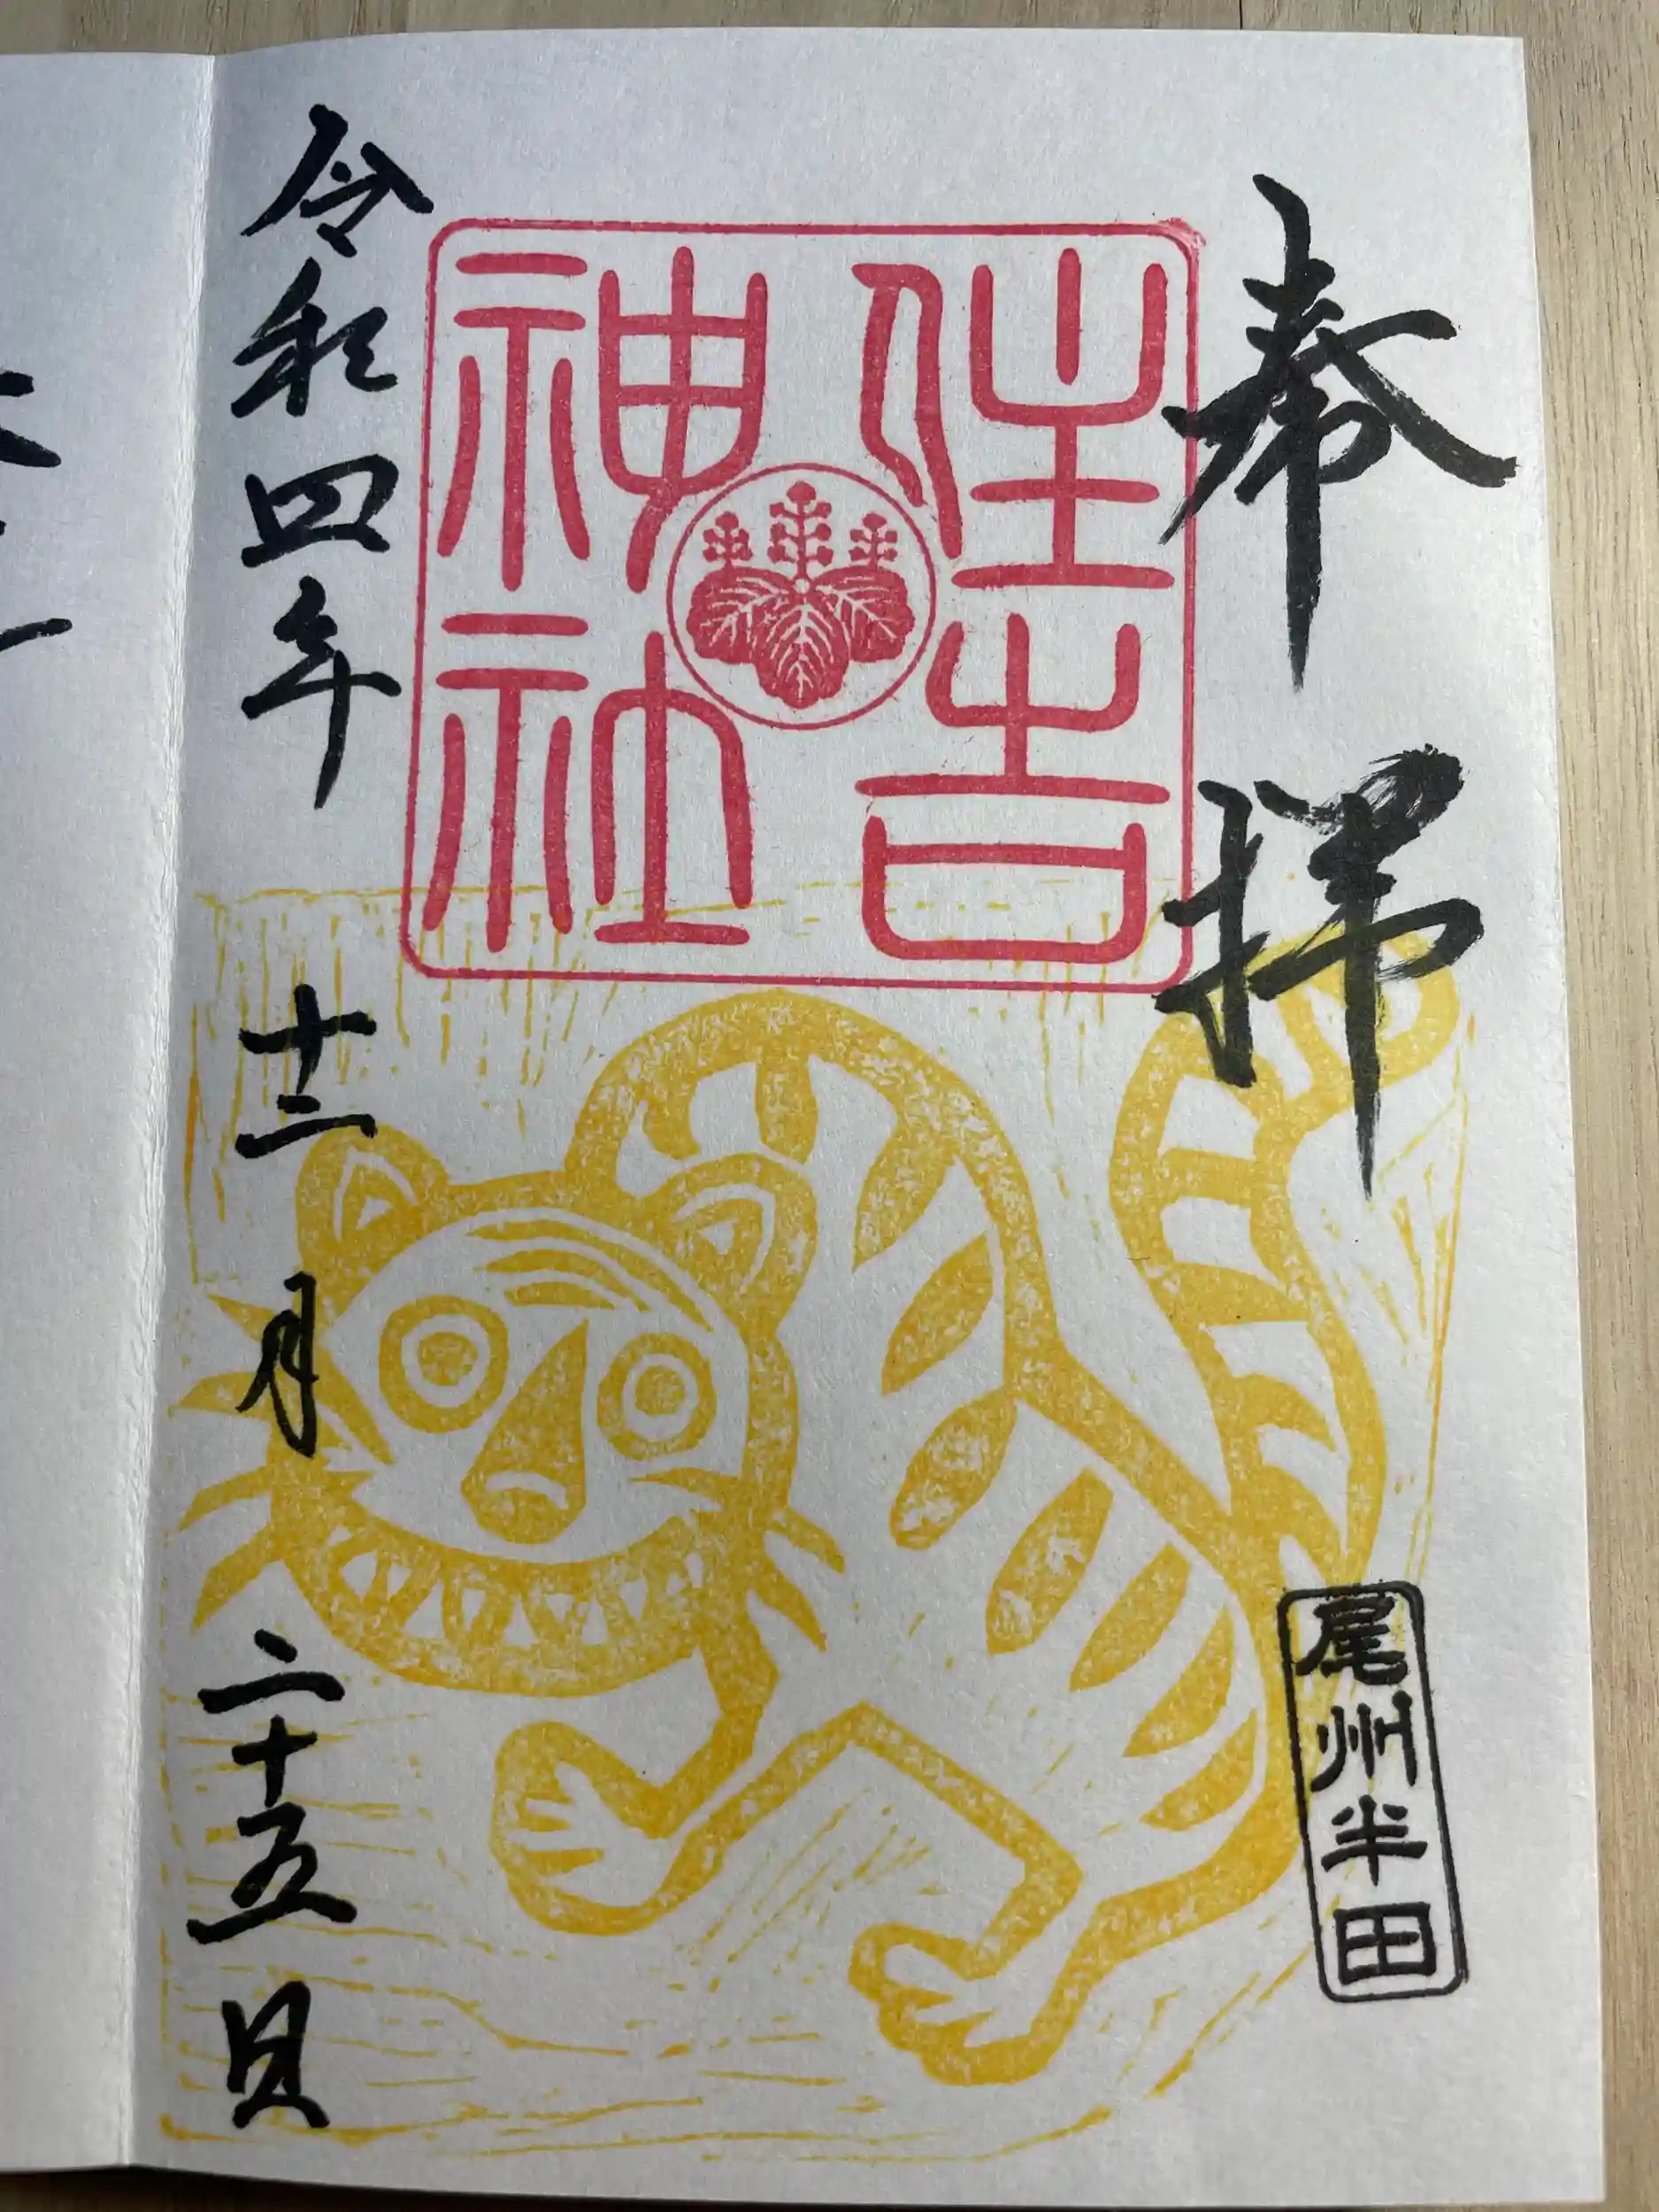 奉拝
住吉
神社
尾州半田
令和四年十二月二十五日